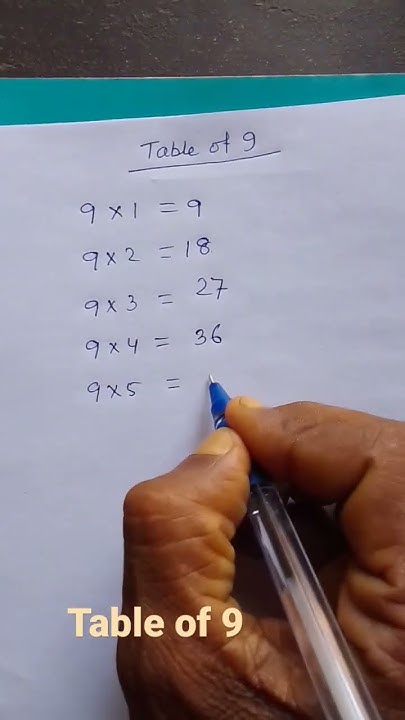 Table of 9
9 × 1 = 9
9 × 2 = 18
9 × 3 = 27
9 × 4 = 36
9 × 5 =
Table of 9